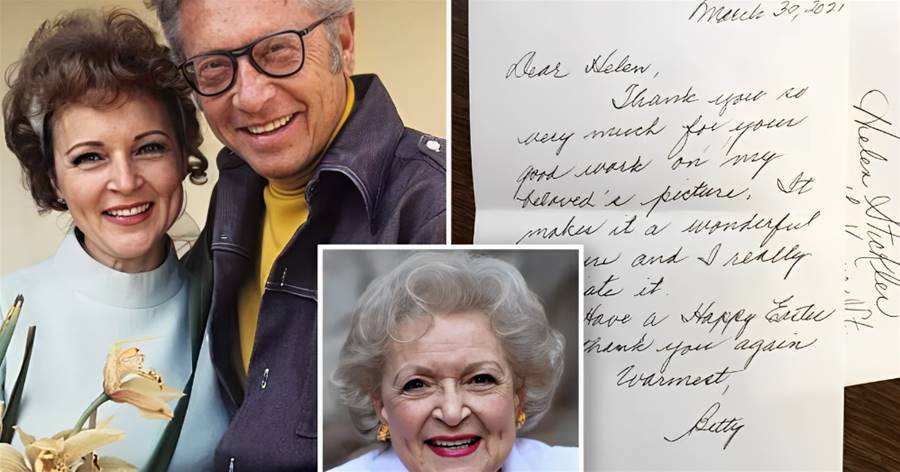 March 30, 2021
Dear Helen,
Thank you so
very much for your
good work on my
beloved's picture. It
makes it a wonderful
and I really
it.
Have a Happy Easter
thank you again
Warmest,
Betty
Helen